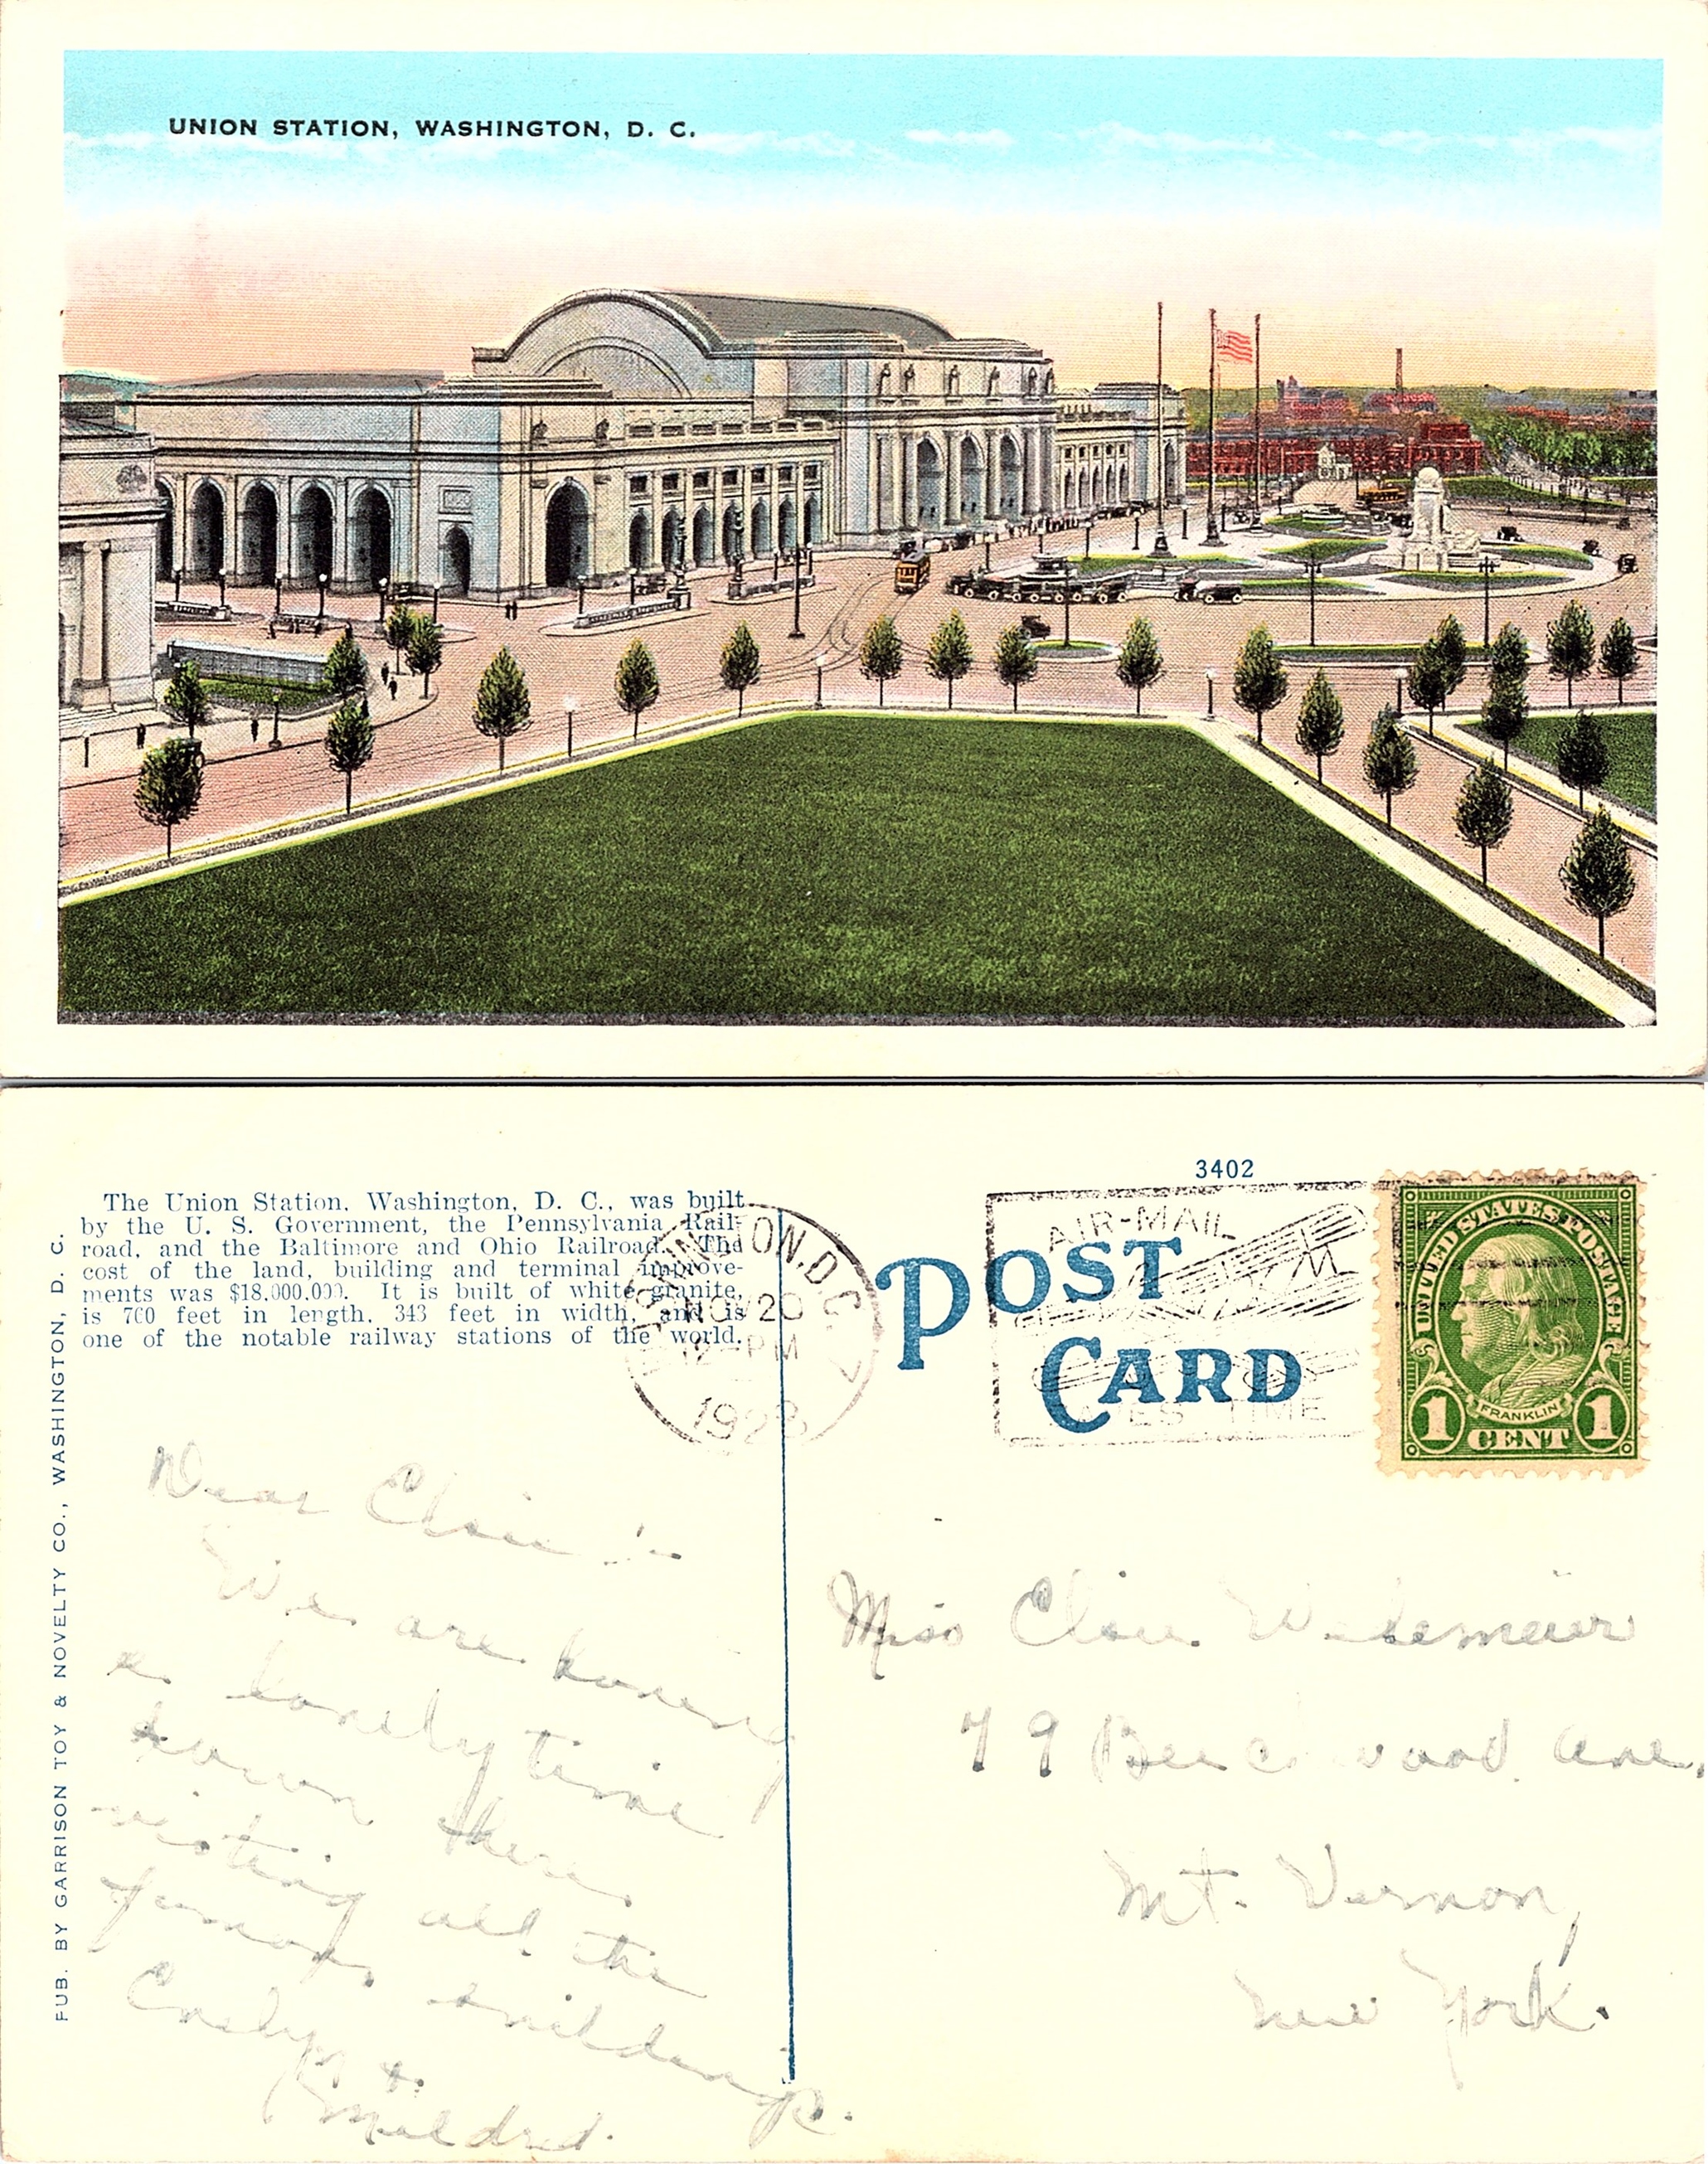 UNION STATION, WASHINGTON, D. C.
The Union Station, Washington, D. C., was built
by the U. S. Government, the Pennsylvania Rail-
road, and the Baltimore and Ohio Railroad. The
cost of the land, building and terminal improve-
ments was $18,000,000. It is built of white granite,
is 760 feet in length, 343 feet in width, and is
one of the notable railway stations of the world.
PUB. BY GARRISON TOY & NOVELTY CO., WASHINGTON, D. C.
3402
POST
CARD
WASHINGTON, D.C.
NOV 20
12 PM
1928
AIR-MAIL
TIME
UNITED STATES POSTAGE
FRANKLIN
1 CENT 1
Dear
We are having
a lonely time
down there
visting all the
famous buildings.
Mildred.
Miss
79 Beechwood Ave,
Mt. Vernon,
New York.